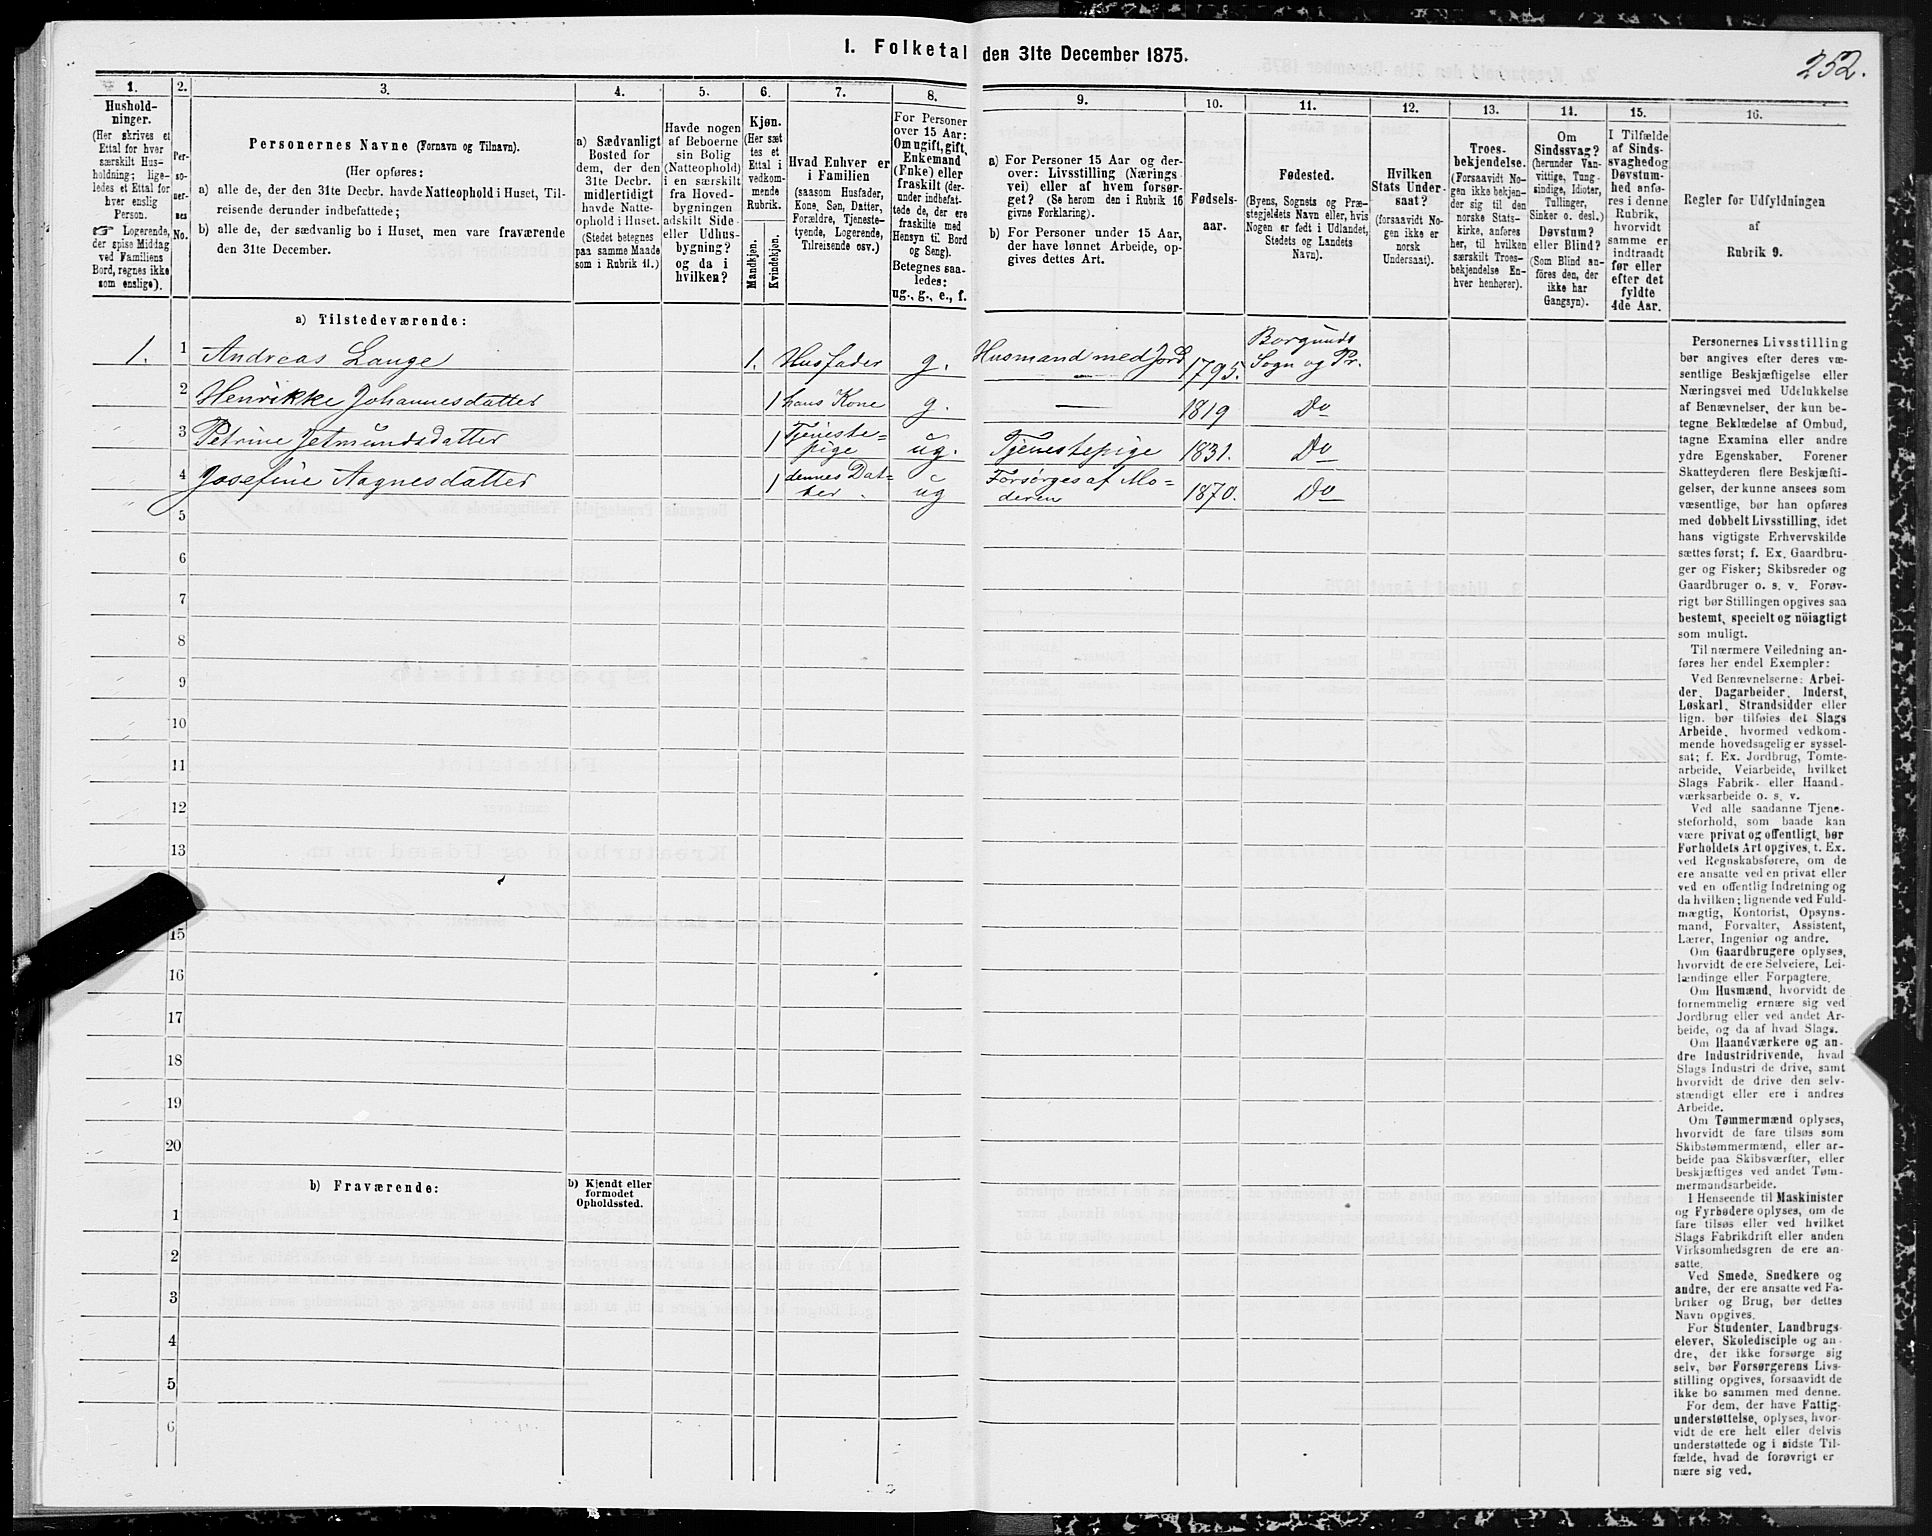 I. Folketal den 31te December 1875.
252.
1.
Hushold-
ninger.
(Her skrives et
Ettal for hver
særskilt Hus-
holdning; lige-
ledes et Ettal for
hver enslig
Person.
☞ Logerende,
der spise Middag
ved Familiens
Bord, regnes ikke
som enslige).
2.
Per-
so-
ner-
nes
No.
3.
Personernes Navne (Fornavn og Tilnavn).
(Her opføres:
a) alle de, der den 31te Decbr. havde Natteophold i Huset, Til-
reisende derunder indbefattede;
b) alle de, der sædvanlig bo i Huset, men vare fraværende
den 31te December.
4.
a) Sædvanligt
Bosted for
dem, der den
31te Decbr.
midlertidigt
havde Natte-
ophold i Huset.
(Stedet betegnes
paa samme Maade
som i Rubrik 11.)
5.
Havde nogen
af Beboerne
sin Bolig
(Natteophold)
i en særskilt
fra Hoved-
bygningen
adskilt Side-
eller Udhus-
bygning?
og da i
hvilken?
6.
Kjøn.
(Her sæt
tes et
Ettal i
vedkom-
mende
Rubrik.
Mandkjøn.
Kvindekjøn.
7.
Hvad Enhver er
i Familien
(saasom Husfader,
Kone, Søn, Datter,
Forældre, Tjeneste-
tyende, Logerende,
Tilreisende osv.)
8.
For Personer
over 15 Aar:
Om ugift, gift,
Enkemand
(Enke) eller
fraskilt (der-
under indbefat-
tede de, der ere
fraskilte med
Hensyn til Bord
og Seng).
Betegnes saa-
ledes:
ug., g., e., f.
9.
a) For Personer 15 Aar og der-
over: Livsstilling (Nærings
vei) eller af hvem forsør-
get? (Se herom den i Rubrik 16
givne Forklaring).
b) For Personer under 15 Aar,
der have lønnet Arbeide, op-
gives dettes Art.
10.
Fødsels-
aar.
11.
Fødested.
(Byens, Sognets og Præ-
stegjeldets Navn eller, hvis
Nogen er født i Udlandet,
Stedets og Landets
Navn).
12.
Hvilken
Stats Under-
saat?
(forsaavidt No-
gen ikke er
norsk
Undersaat).
13.
Troes-
bekjendelse.
(Forsaavidt No-
gen ikke bekjen-
der sig til den
norske Stats-
kirke, anføres
her, til hvilken
særskilt Troes-
bekjendelse En-
hver henhører).
14.
Om
Sindssvag?
(herunder Van-
vittige, Tung-
sindige, Idioter,
Tullinger,
Sinker o. desl.)
Døvstum?
eller Blind?
(Som Blind an-
føres den, der
ikke har
Gangsyn).
15.
I Tilfælde
af Sinds-
svaghedog
Døvstum-
hed anfø-
res i denne
Rubrik,
hvorvidt
samme er
indtraadt
før eller
efter det
fyldte
4de Aar.
16.
Regler for Udfyldningen
af
Rubrik 9.
a) Tilstedeværende:
1. 1 Andreas Lange 1. Husfader g. Husmand med Jord 1795. Borgunds Sogn og Pr.
2 Henrikke Johannesdatter 1 hans Kone g. — 1819 Do
3 Petrine Jetmundsdatter 1 Tjeneste=pige ug. Tjenestepige 1831. Do
4 Josefine Aagnesdatter 1 dennes Dat=ter ug Forsørges af Mo=deren 1870. Do
5
6
7
8
9
10
11
12
13
15
16
17
18
19
20
b) Fraværende:
b) Kjendt eller
formodet
Opholdssted.
1
2
3
4
5
6
Personernes Livsstilling
bør angives efter deres væ-
sentlige Beskjæftigelse eller
Næringsvei med Udelukkelse
af Benævnelser, der kun be-
tegne Beklædelse af Ombud,
tagne Examina eller andre
ydre Egenskaber. Forener
Skatteyderen flere Beskjæfti-
gelser, der kunne ansees som
væsentlige, bør han opføres
med dobbelt Livsstilling, idet
hans vigtigste Erhvervskilde
sættes først; f. Ex. Gaardbru-
ger og Fisker; Skibsreder og
Gaardbruger o. s. v. Forøv-
rigt bør Stillingen opgives saa
bestemt, specielt og nöiagtigt
som muligt.
Til nærmere Veiledning an-
føres her endel Exempler:
Ved Benævnelserne: Arbei-
der, Dagarbeider, Inderst,
Løskarl, Strandsidder eller
lign. bør tilføies det Slags
Arbeide, hvormed vedkom-
mende hovedsagelig er syssel-
sat; f. Ex. Jordbrug, Tomte-
arbeide, Veiarbeide, hvilket
Slags Fabrik- eller Haand-
værksarbeide o. s. v.
Ved alle saadanne Tjene-
steforhold, som baade kan
være privat og offentligt, bør
Forholdets Art opgives, f. Ex.
ved Regnskabsførere, om de
ere ansatte ved en privat eller
ved en offentlig Indretning og
da hvilken; lignende ved Fuld-
mægtig, Kontorist, Opsyns-
mand, Forvalter, Assistent,
Lærer, Ingeniør og andre.
Om Gaardbrugere oplyses,
hvorvidt de ere Selveiere, Lei-
lændinge eller Forpagtere.
Om Husmænd, hvorvidt de
fornemmelig ernære sig ved
Jordbrug eller ved andet Ar-
beide, og da af hvad Slags.
Om Haandværkere og an-
dre Industridrivende, hvad
Slags Industri de drive, samt
hvorvidt de drive den selv-
stændigt eller ere i andres
Arbeide.
Om Tømmermænd oplyses,
hvorvidt de fare tilsøs som
Skibstømmermænd, eller ar-
beide paa Skibsværfter, eller
beskjæftiges ved andet Tøm-
mermandsarbeide.
I Henseende til Maskinister
og Fyrbødere oplyses, om de
fare tilsøs eller ved hvilket
Slags Fabrikdrift eller anden
Virksomhedsgren de ere an-
satte.
Ved Smede, Snedkere og
andre, der ere ansatte ved Fa-
briker og Brug, bør dettes
Navn opgives.
For Studenter, Landbrugs-
elever, Skoledisciple og an-
dre, der ikke forsørge sig
selv, bør Forsørgerens Livs-
stilling opgives, forsaavidt de
ikke bo sammen med denne.
For dem, der have Fattig-
understøttelse, oplyses, hvor-
vidt de ere helt eller delvis
understøttede og i sidste Til-
fælde, hvad de forøvrigt er
nære sig ved.